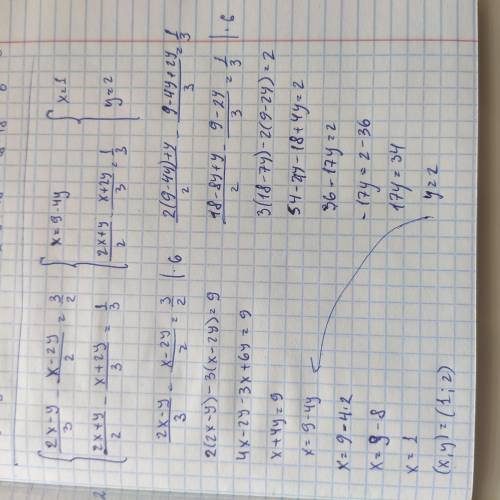 { (2x-y)/3 - (x-2y)/2 = 3/2
(2x+y)/2 - (x+2y)/3 = 1/3
{ x=9-4y
(2x+y)/2 - (x+2y)/3 = 1/3
{ x=1
y=2
(2x-y)/3 - (x-2y)/2 = 3/2 |·6
2(2x-y)-3(x-2y)=9
4x-2y-3x+6y=9
x+4y=9
x=9-4y
x=9-4·2
x=9-8
x=1
(x;y)=(1;2)
(2(9-4y)+y)/2 - (9-4y+2y)/3 = 1/3
(18-8y+y)/2 - (9-2y)/3 = 1/3 |·6
3(18-7y)-2(9-2y)=2
54-21y-18+4y=2
36-17y=2
-17y=2-36
17y=34
y=2